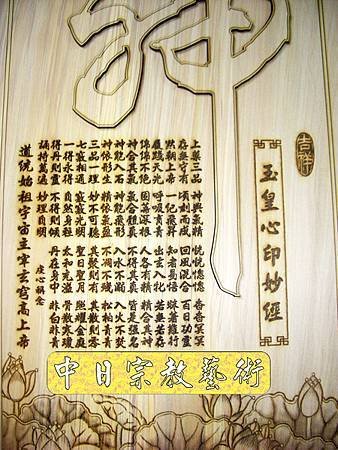 神
吉祥
玉皇心印妙經
上藥三品　神與氣精　恍恍惚惚　杳杳冥冥
存無守有　頃刻而成　回風混合　百日功靈
默朝上帝　一紀飛昇　知者易悟　昧者難行
履踐天光　呼吸育清　出玄入牝　若無若存
綿綿不絕　固蒂深根　人各有精　精合其神
神合其氣　氣合其真　不得其真　皆是強名
神能入石　神能飛形　入水不溺　入火不焚
神依形生　精依氣盈　不凋不殘　松柏青青
三品一理　妙不可聽　其聚則有　其散則無
七竅相通　竅竅光明　聖日聖月　照耀金庭
一得永得　自然身輕　太和充溢　骨散寒瓊
得丹則靈　不得則傾　丹在身中　非白非青
誦持萬遍　妙理自明
虔心稱念
道統始祖宇宙主宰玄穹高上帝
中日宗教藝術